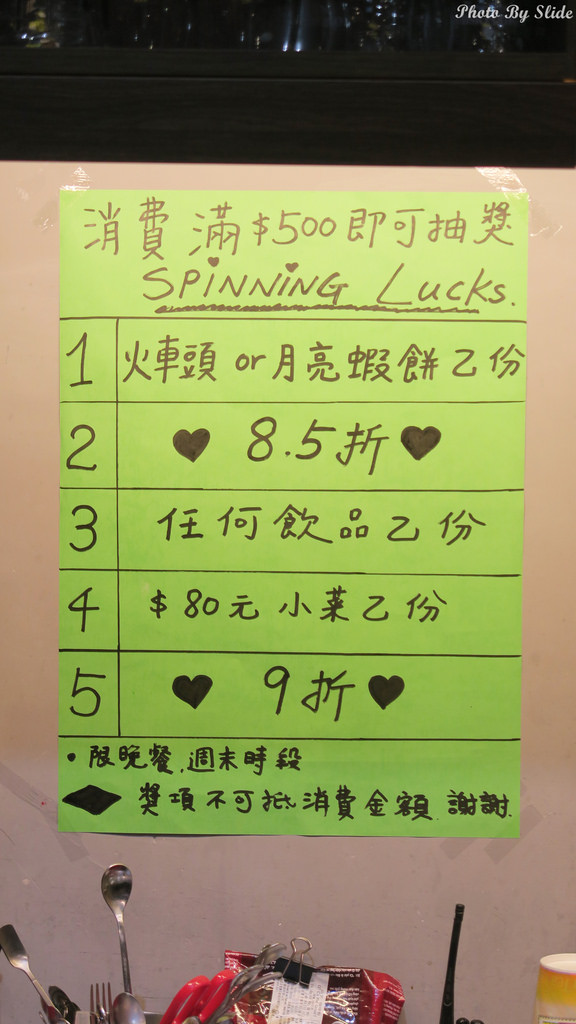 Photo By Slide
消費滿$500即可抽獎
SPINNING Lucks.
1 火車頭 or 月亮蝦餅乙份
2 ♥ 8.5折 ♥
3 任何飲品乙份
4 $80元小菜乙份
5 ♥ 9折 ♥
• 限晚餐.週末時段
◆ 獎項不可抵消費金額.謝謝.